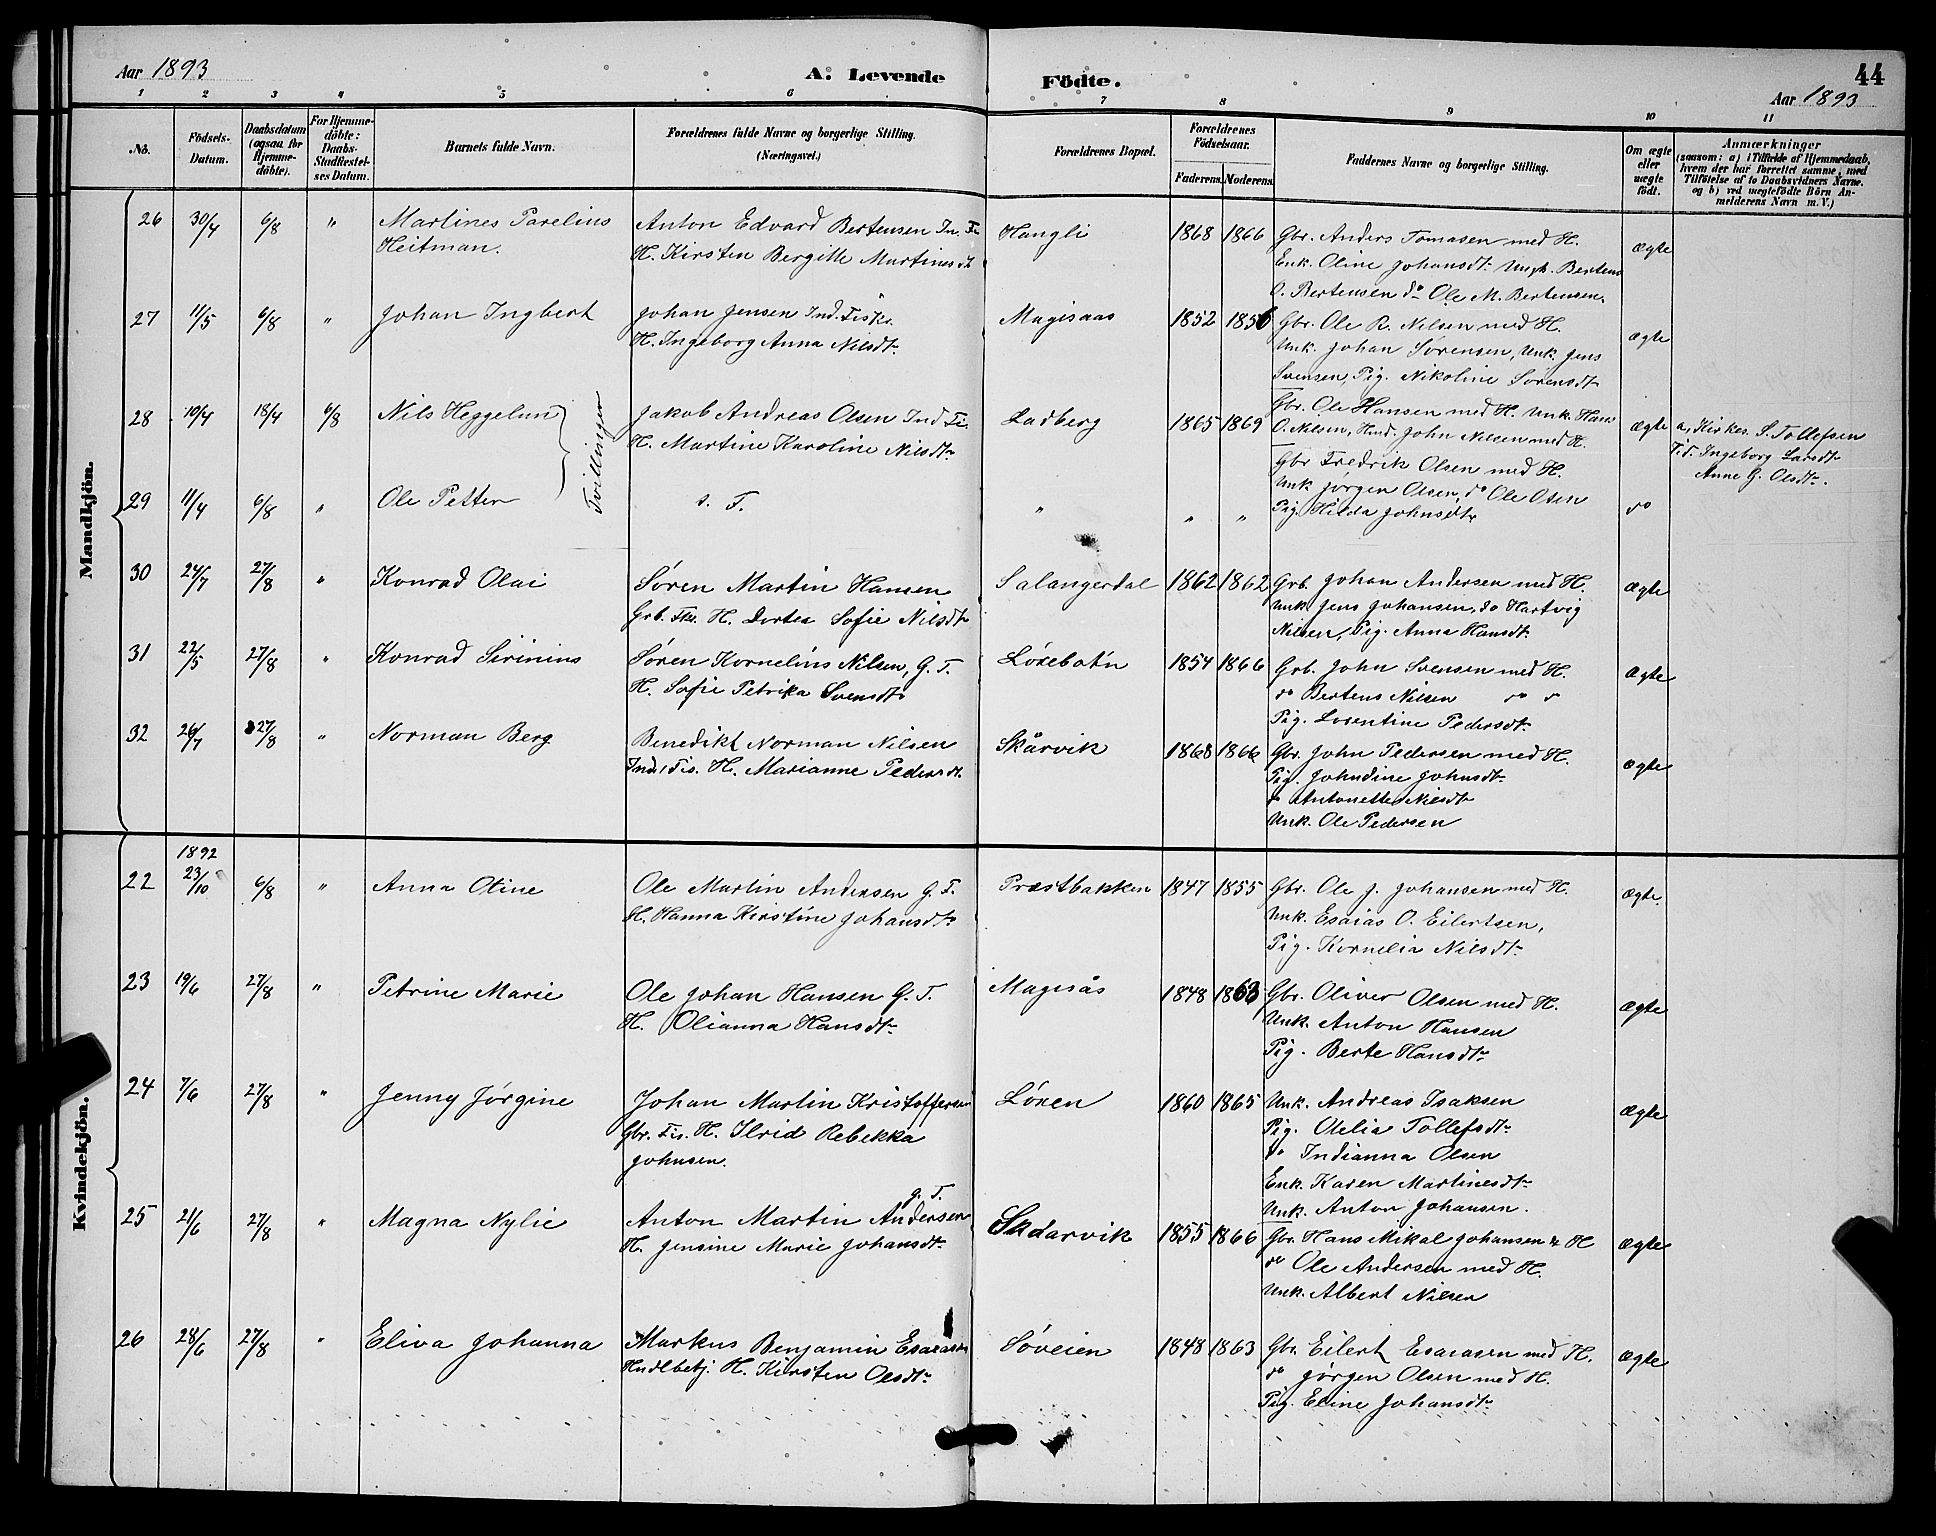 Aar 1893
A. Levende Födte.
44
Aar 1893
1 2 3 4 5 6 7 8 9 10 11
No.
Födsels-Datum.
Daabsdatum (ogsaa for Hjemme-döbte).
For Hjemme-döbte: Daabs-Stadfæstel-ses Datum.
Barnets fulde Navn.
Forældrenes fulde Navne og borgerlige Stilling.
(Næringsvei.)
Forældrenes Bopæl.
Forældrenes Födselsaar.
Faderens. Moderens.
Faddernes Navne og borgerlige Stilling.
Om ægte eller uægte födt.
Anmærkninger
(saasom: a) i Tilfælde af Hjemmedaab,
hvem der har forrettet samme, med
Tilföielse af to Daabsvidners Navne,
og b) ved uegtefödte Börn An-
melderens Navn m. V.)
Mandkjön.
26 30/4 6/8 " Martines Parelius Anton Edvard Bertensen In. Fi. Hangli 1868 1866 Gbr. Anders Tomasen med H. ægte
Heitman. H. Kirsten Bergitte Martinesdt. Enk. Oline Johansdt. Ungk. Bertens
O. Bertensen do Ole M. Bertensen.
27 11/5 6/8 " Johan Ingbert Johan Jensen Ind. Fisk. Magisaas 1852 1856 Gbr. Ole R. Nilsen med H. ægte
H. Ingeborg Anna Nilsdt. Unk. Johan Sørensen, Unk. Jens
Svensen, Pig. Nikoline Sørensdt.
28 10/4 18/4 6/8 Nils Heggelun Tvillinger Jakob Andreas Olsen Ind Fi. Ladberg 1865 1869 Gbr. Ole Hansen med H. Unk. Hans ægte a, Kirkes. S. Tollefsen
H. Martine Karoline Nilsdt. O. Nilsen, Ind. John Nilsen med H. F. d. Ingeborg Larsdt.
Gbr Fredrik Olsen med H. Anne G. Olsdt.
29 11/4 6/8 " Ole Petter s. F. " " " Unk Jørgen Olsen, do Ole Olsen do
Pig. Hilda Johnsdt.
30 24/7 27/8 " Konrad Olai Søren Martin Hansen Salangerdal 1862 1862 Grb. Johan Andersen med H. ægte
Grb. Fis. H. Dortea Sofie Nilsdt. Unk. Jens Johansen, do Hartvig
Nilsen, Pig. Anna Hansdt.
31 22/5 27/8 " Konrad Sirinius Søren Kornelius Nilsen, G. F. Løsebotn 1854 1866 Grb. John Svensen med H. ægte
H. Sofie Petrika Svensdt. do Bertens Nilsen do do
Pig. Lorentine Pedersdt.
32 26/7 27/8 " Norman Berg Benedikt Norman Nilsen Skårvik 1868 1866 Gbr. John Pedersen med H. ægte
Ind. Fis. H. Marianne Pedersdt. Pig. Johndine Johnsdt.
do Antonette Nilsdt.
Unk. Ole Pedersen
Kvindekjön.
1892
22 23/10 6/8 " Anna Otine Ole Martin Andersen G. F. Præstbakken 1847 1855 Gbr. Ole J. Johansen med H. ægte.
H. Hanna Kirstine Johansdt. Unk. Esaias O. Eilertsen,
Pig. Kornelia Nilsdt.
23 19/6 27/8 " Petrine Marie Ole Johan Hansen G. F. Magisås 1848 1863 Gbr. Oliver Olsen med H. ægte
H. Olianna Hansdt. Unk. Anton Hansen
Pig. Berte Hansdt.
24 7/6 27/8 " Jenny Jørgine Johan Martin Kristoffersen Løsen 1860 1865 Unk. Andreas Isaksen ægte
Gbr. Fis. H. Ilrid Rebekka Pig. Otelia Tollefsdt.
Johnsen. do Indianna Olsen
Enk. Karen Martinesdt.
Unk. Anton Johansen.
25 21/6 27/8 " Magna Nylie Anton Martin Andersen G. F. Skaarvik 1855 1866 Gbr. Hans Mikal Johansen m H ægte
H. Jensine Marie Johansdt. do Ole Andersen med H.
Unk. Albert Nilsen
26 28/6 27/8 " Eliva Johanna Markus Benjamin Esaiasen Søveien 1848 1863 Gbr. Eilert Esaiasen med H. ægte
Hndlbetj. H. Kirsten Olsdt. do Jørgen Olsen med H.
Pig. Eline Johansdt.